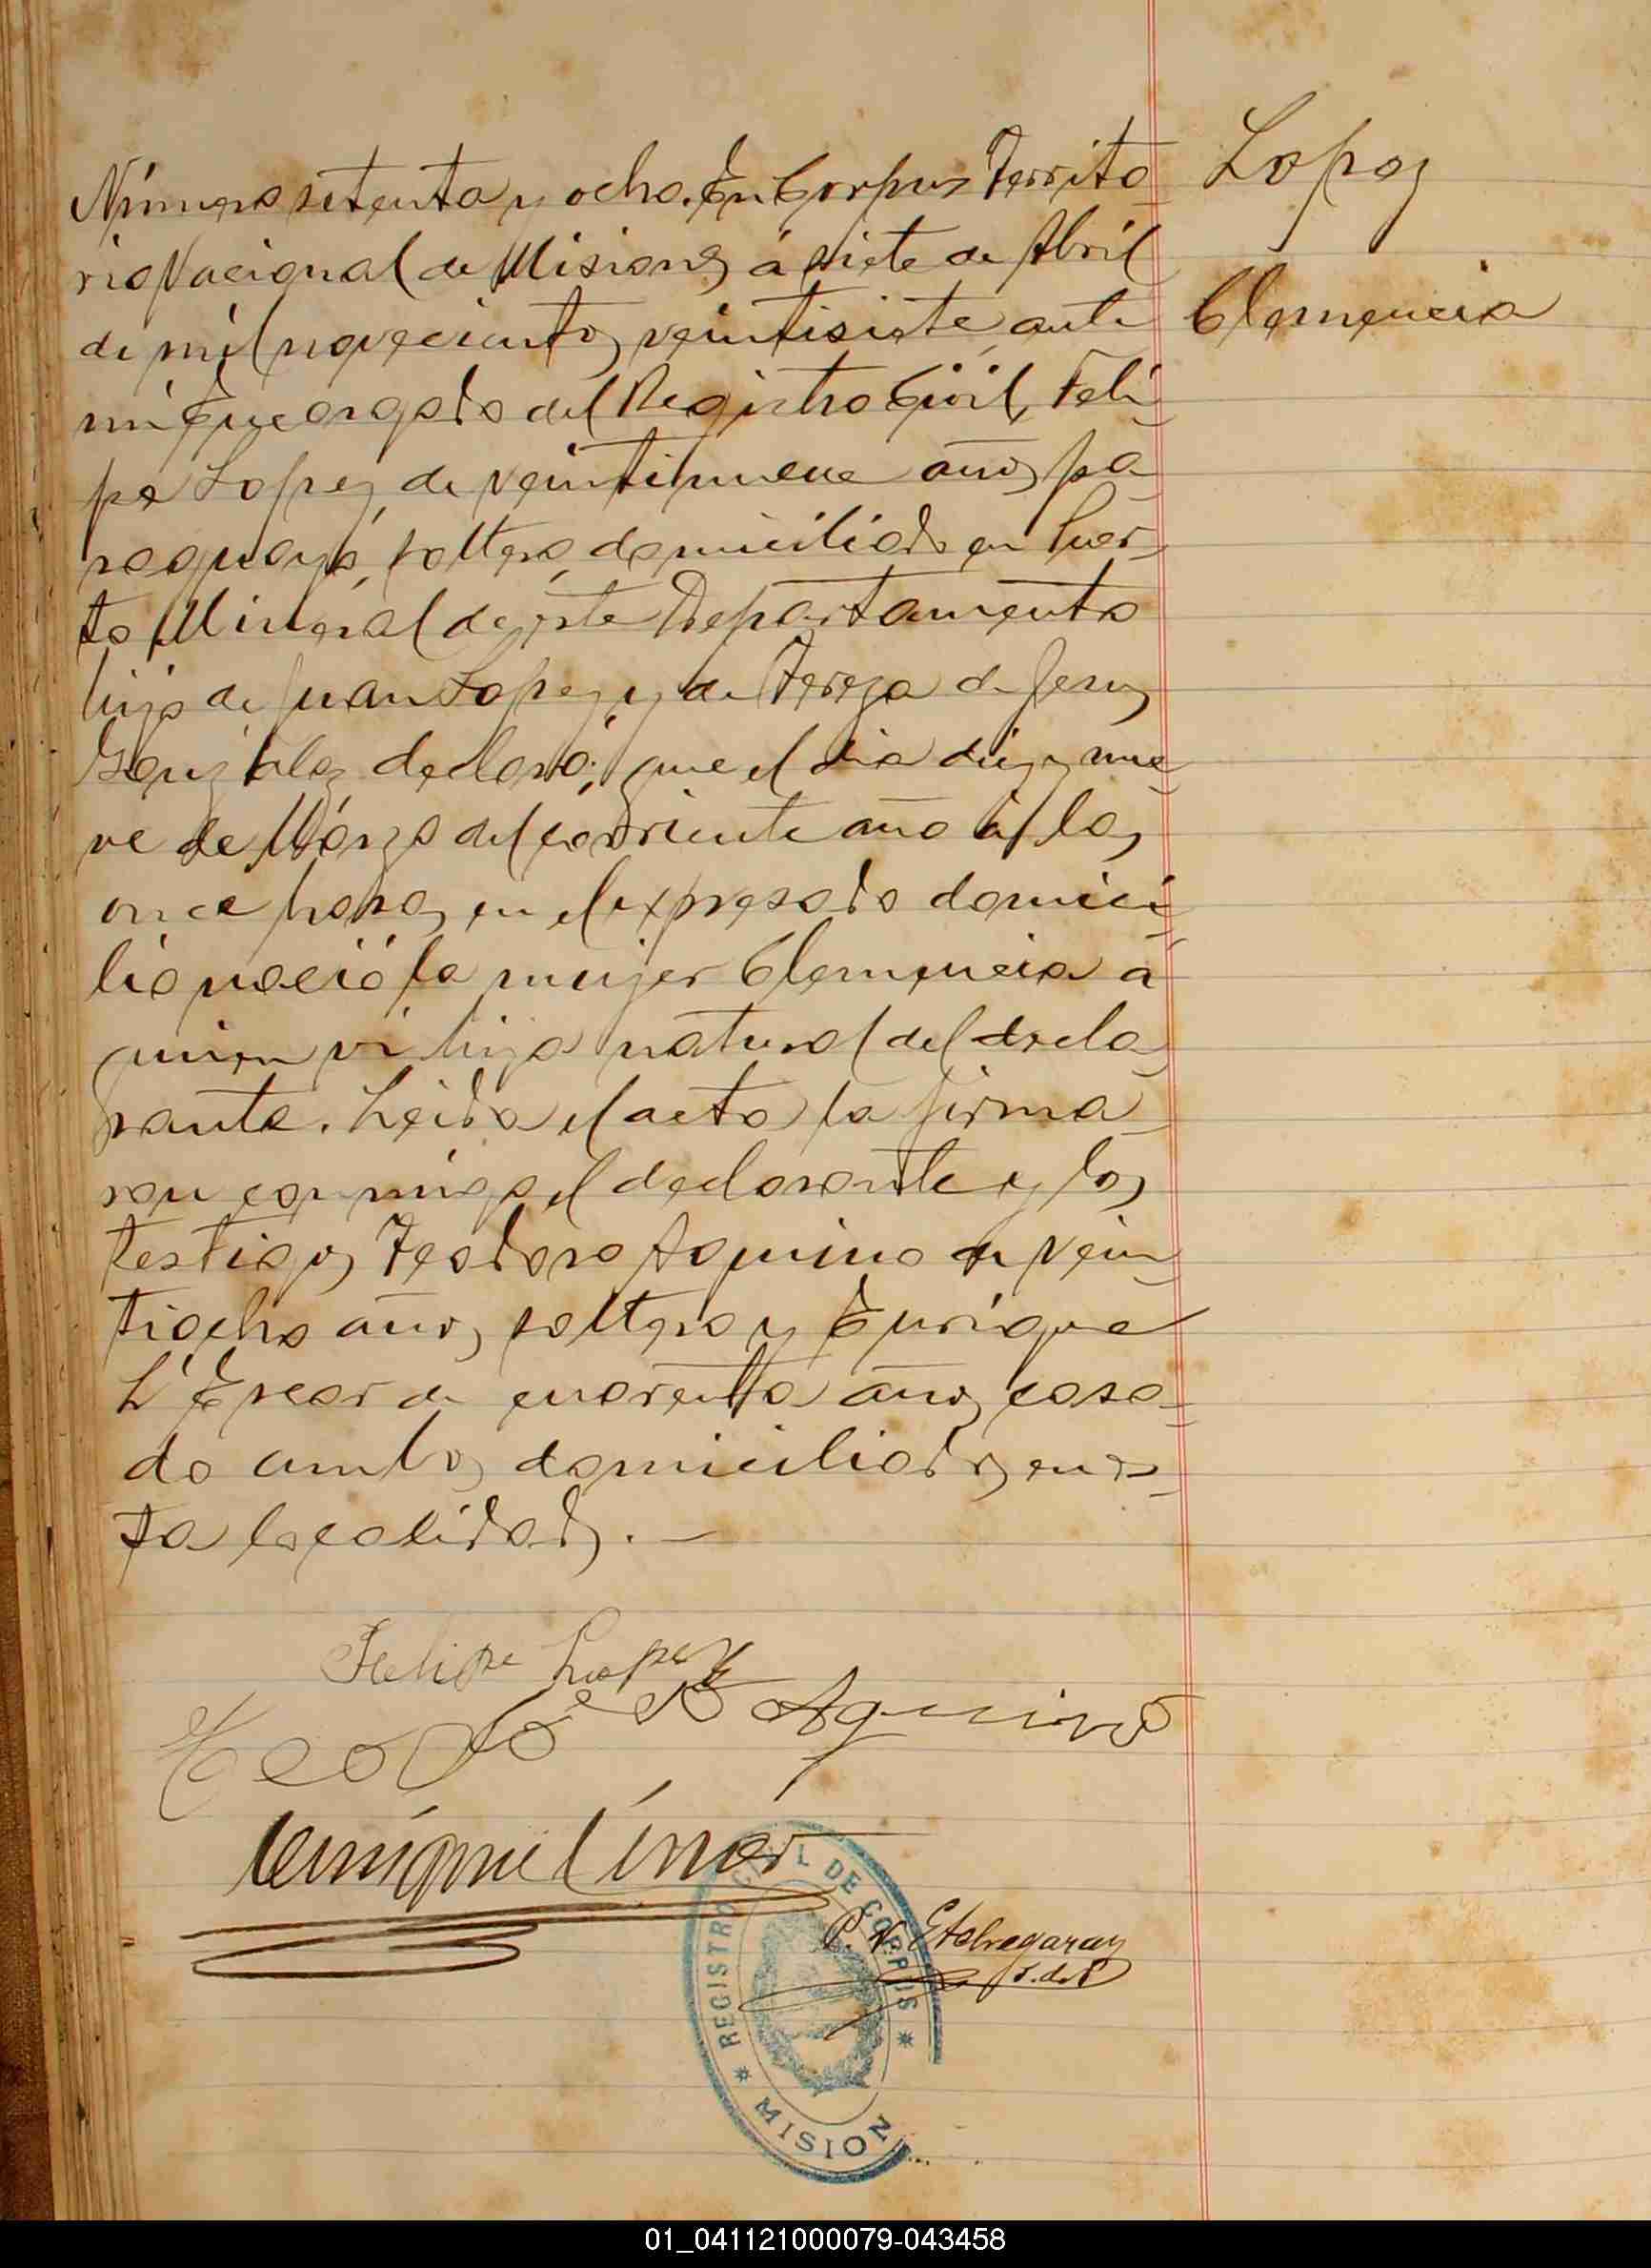 Número setenta y ocho. En Corpus Territo-
rio Nacional de Misiones á siete de Abril
de mil novecientos veintisiete, ante
mí Encargado del Registro Civil, Feli-
pe Lopez de veintinueve años, pa-
raguayo, soltero, domiciliado en Puer-
to Mineral de este Departamento
hijo de Juan Lopez y de Tereza de Jesus
Gonzalez declaró; que el dia diez y nue-
ve de Márzo del corriente año á las
once horas en el expresado domici-
lio nació la mujer Clemencia a
quien ví hija natural del decla-
rante. Leida el acta la firma-
ron conmigo el declarante y los
testigos Teodoro Aquino de vein-
tiocho años, soltero y Enrique
L' de cuarenta años casa-
do ambos domiciliados en es-
ta localidad. —
Lopez
Clemencia
Felipe Lopez
Teodoro Aquino
Enrique
P. N. Etchegaray
REGISTRO CIVIL DE CORPUS
MISION
01_041121000079-043458